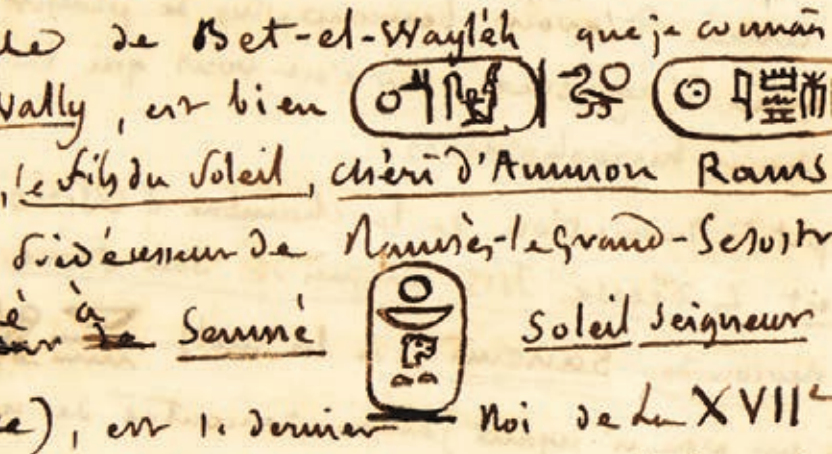 de Bet-el-Wayléh que je connais
Wally, est bien
, le fils du Soleil, chéri d'Ammon Rams
prédécesseur de Ramsès-le Grand-Sesostr
à Semné Soleil Seigneur
e), est le dernier Roi de la XVIIe